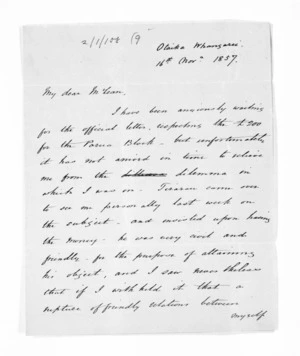 2/1/188 (9
Otaika Whangarei
16th Novr 1857.
My dear McLean,
I have been anxiously waiting
for the official letter, respecting the £200
for the Parua Block - but unfortunately
it has not arrived in time to relieve
me from the dilemma in
which I was in. came over
to see me personally last week on
the subject - and insisted upon having
the money - he was very cool and
friendly - for the purpose of attaining
his object, and I saw nevertheless
that if I withheld it that a
rupture of friendly relations between
myself